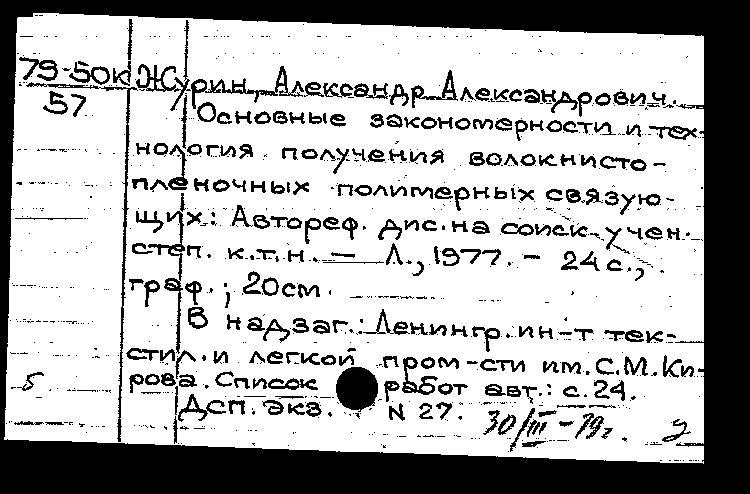 79-50к Журин, Александр Александрович.
57 Основные закономерности и тех-
нология получения волокнисто-
пленочных полимерных связую-
щих: Автореф. дис. на соиск. учен.
степ. к.т.н. — Л., 1977. - 24 с.,
граф.; 20см.
В надзаг.: Ленингр. ин-т тек-
стил. и легкой пром-сти им. С.М. Ки-
рова. Список работ авт.: с. 24.
Дсп. экз. N 27.
30/III - 79г.